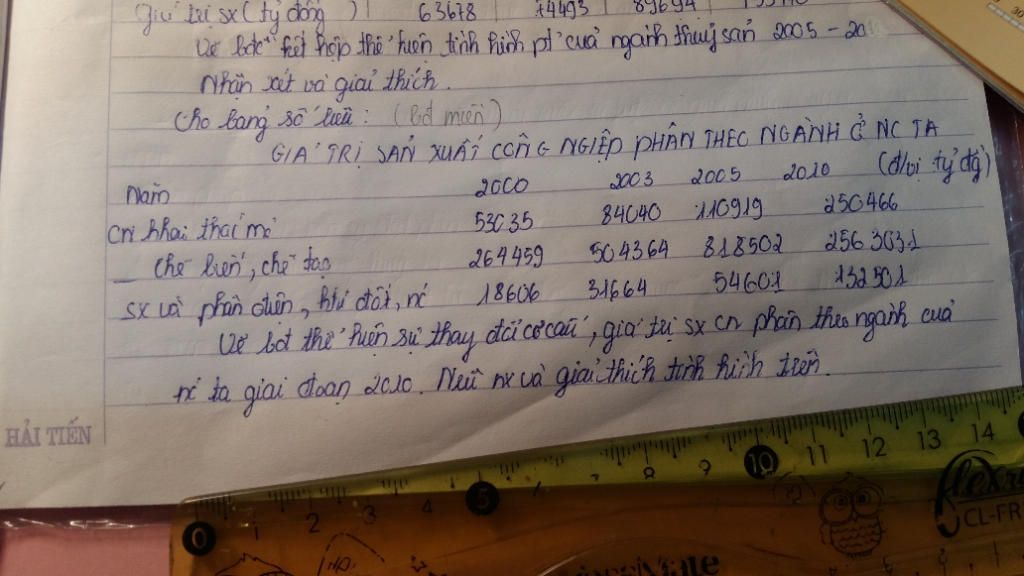 Giá trị sx (tỷ đồng) 63678 74493 89694
Vẽ bđ kết hợp thể hiện tình hình pt của ngành thuỷ sản 2005 - 20
Nhận xét và giải thích.
Cho bảng số liệu: (bđ miền)
GIÁ TRỊ SẢN XUẤT CÔNG NGIỆP PHÂN THEO NGÀNH Ở NC TA
(đ/bị tỷ đg)
Năm 2000 2003 2005 2010
CN khai thái mỏ 53035 84040 110919 250466
_ Chế biến, chế tạo 264459 504364 818502 2563031
SX và phân điện, khí đốt, nc 18606 31664 54601 132501
Vẽ bđ thể hiện sự thay đổi cơ cấu, giá trị sx cn phân theo ngành của
nc ta giai đoạn 2010. Nêu nx và giải thích tình hình trên.
HẢI TIẾN
0 1 2 3 4 5 7 8 9 10 11 12 13 14
CL-FR
30